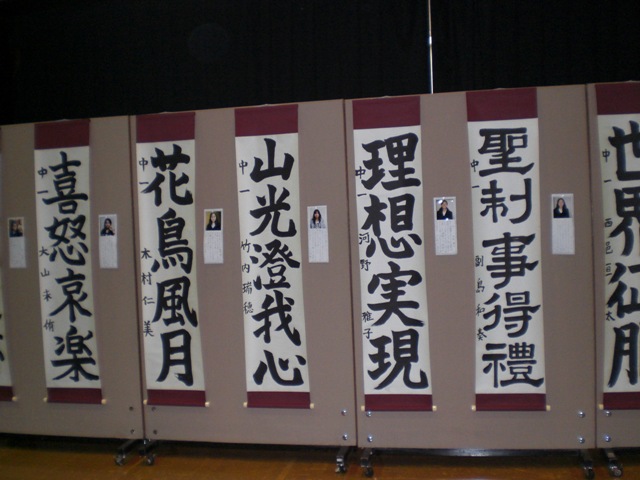 喜怒哀楽
中一
大山
花鳥風月
中一 木村仁美
山光澄我心
中一 竹内瑞穂
理想実現
中一 河野雅子
聖制事得禮
中一
世界
中一 西